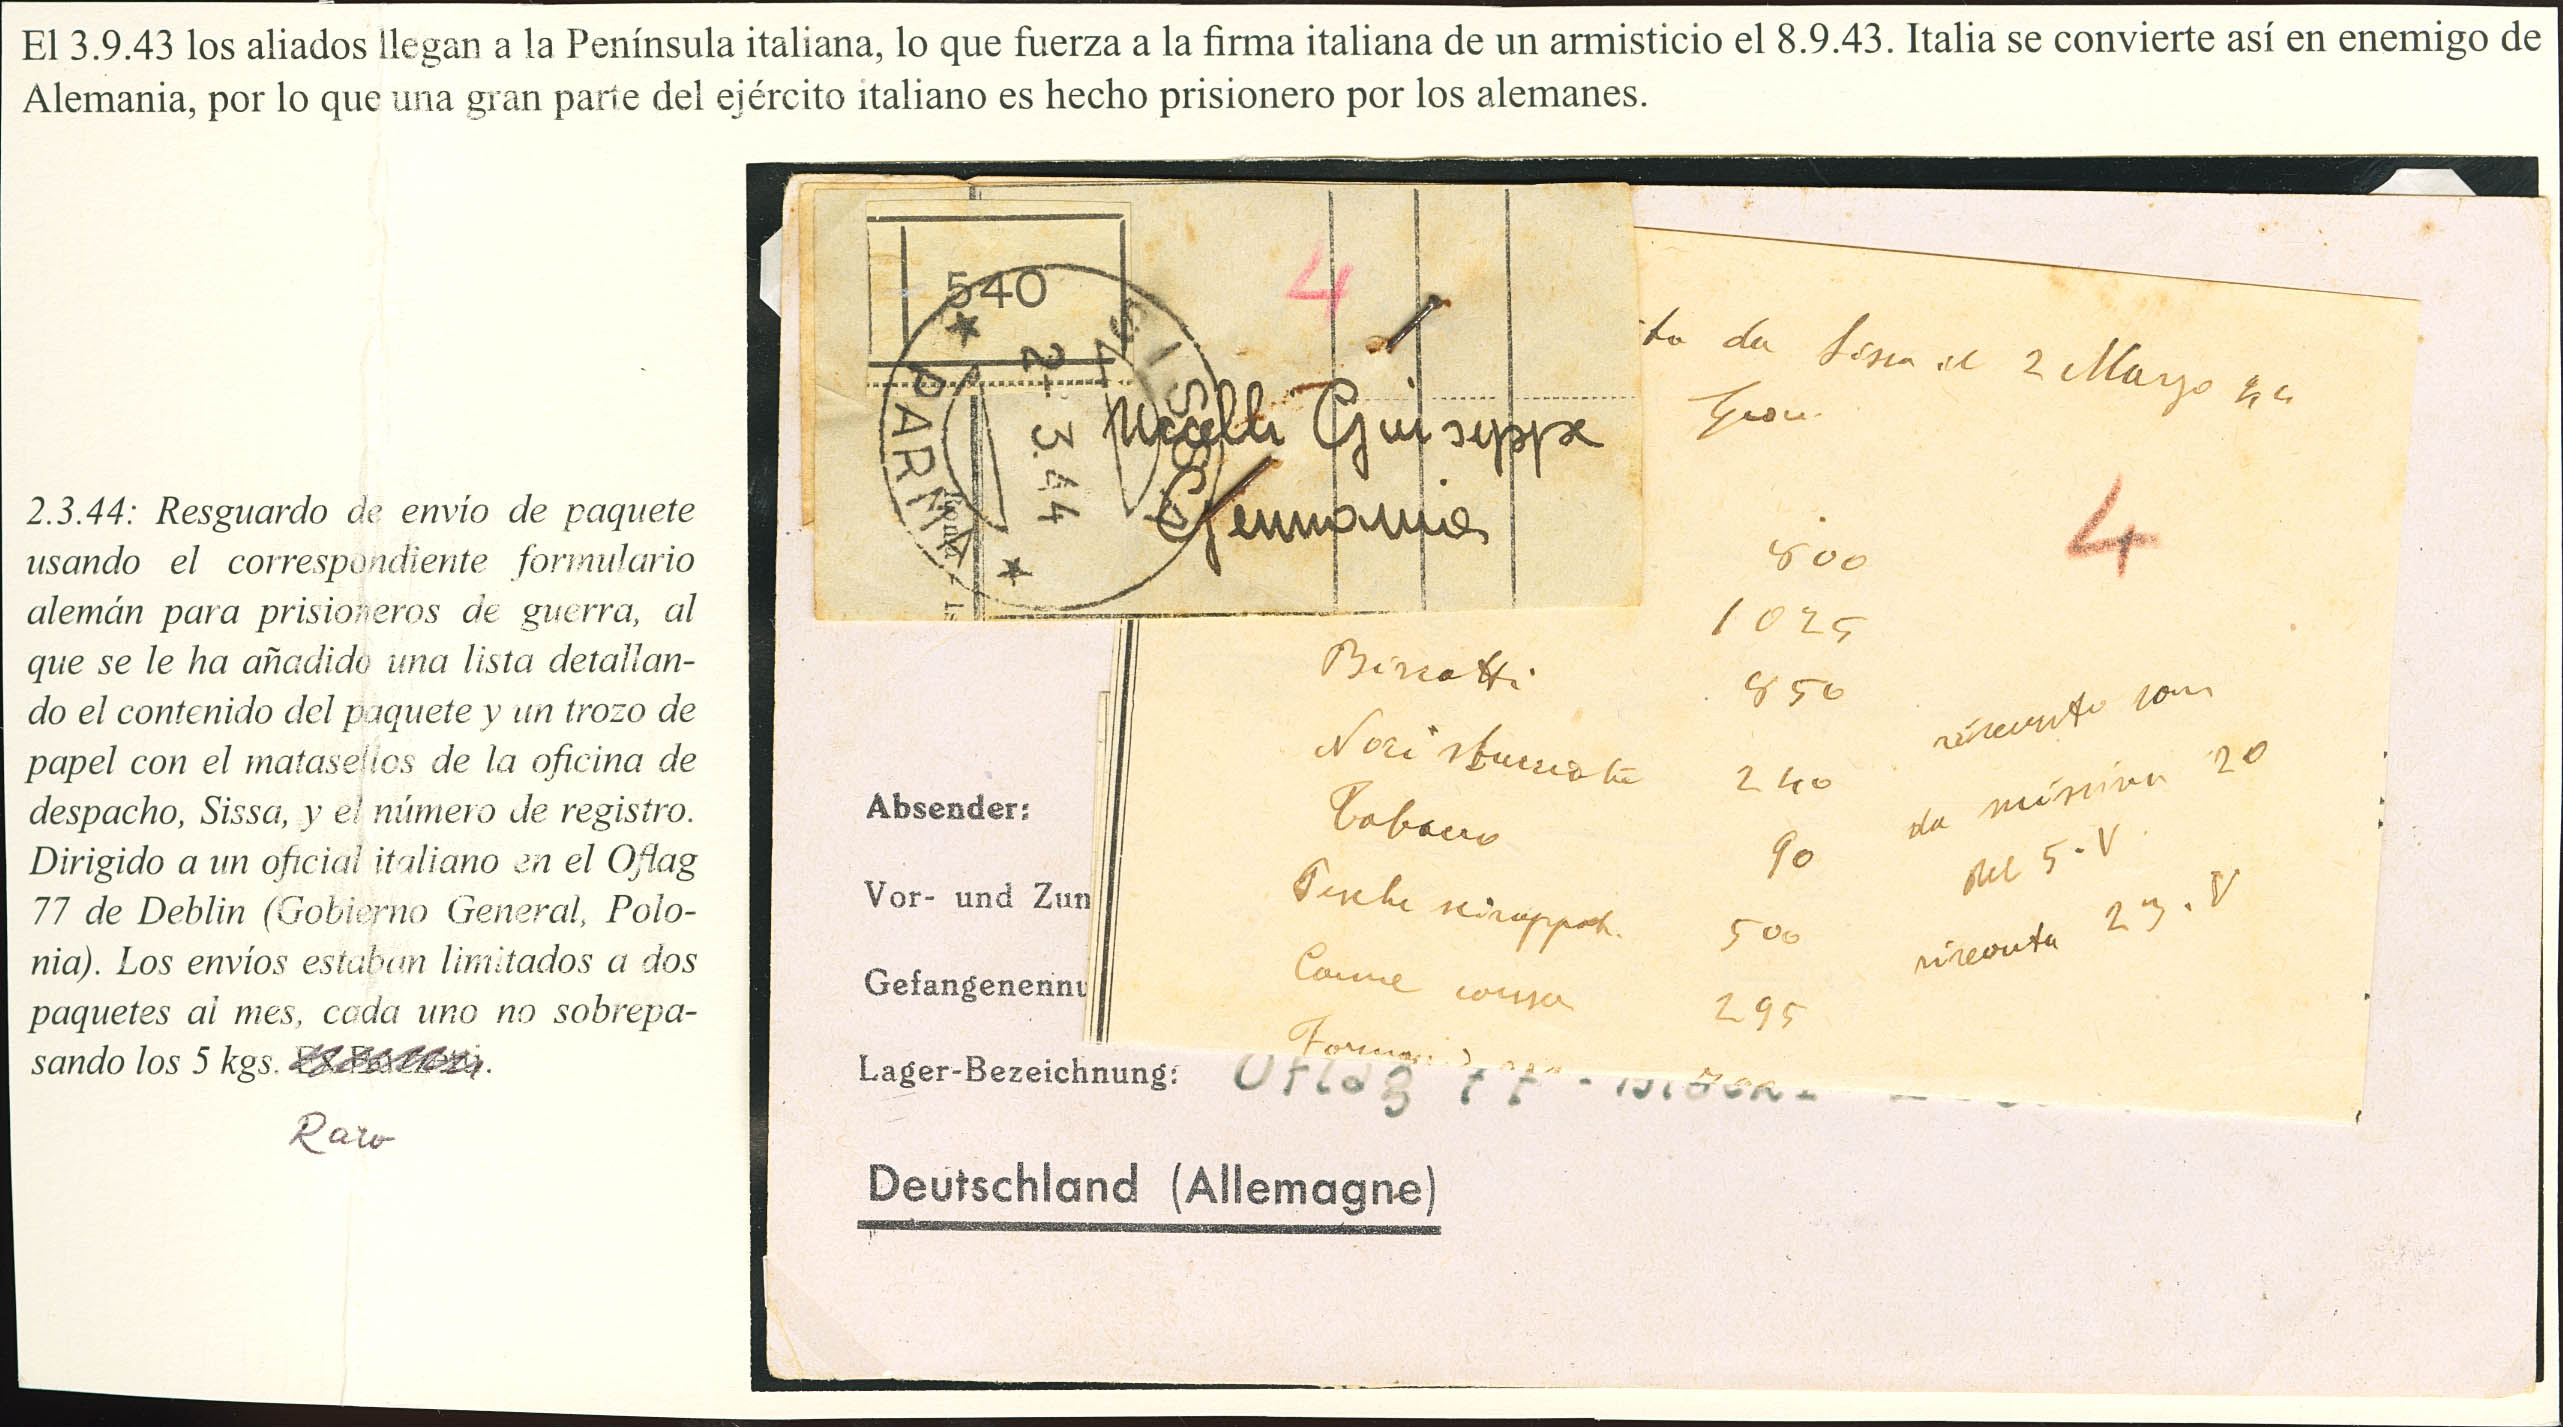 El 3.9.43 los aliados llegan a la Península italiana, lo que fuerza a la firma italiana de un armisticio el 8.9.43. Italia se convierte así en enemigo de
Alemania, por lo que una gran parte del ejército italiano es hecho prisionero por los alemanes.
2.3.44: Resguardo de envío de paquete
usando el correspondiente formulario
alemán para prisioneros de guerra, al
que se le ha añadido una lista detallan-
do el contenido del paquete y un trozo de
papel con el matasellos de la oficina de
despacho, Sissa, y el número de registro.
Dirigido a un oficial italiano en el Oflag
77 de Deblin (Gobierno General, Polo-
nia). Los envíos estaban limitados a dos
paquetes al mes, cada uno no sobrepa-
sando los 5 kgs.
Raro
540
4
SISSA
PARMA
2-3.44
Giuseppe
Germania
da Sissa il 2 Marzo 44
4
800
1025
Biscotti 850
Noci 240
Tabacco 90
Pesche sciroppat. 500
Carne 295
da missiva 20
del 5-V
23.V
Absender:
Vor- und Zun
Gefangenennu
Lager-Bezeichnung: Oflag 77 -
Deutschland (Allemagne)